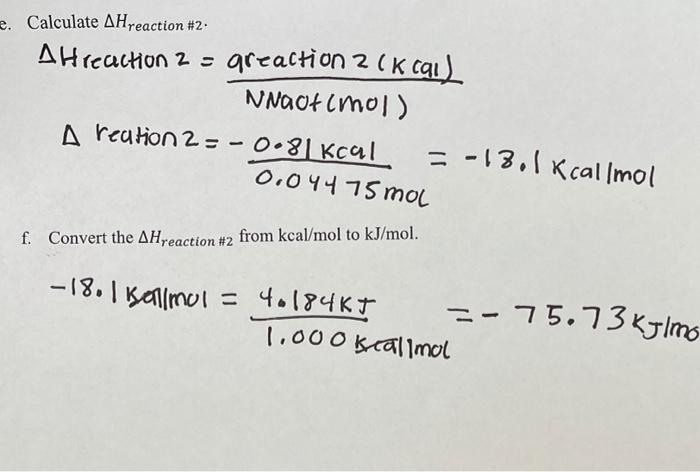 e. Calculate ΔHreaction #2.
ΔHreaction 2 = qreaction 2 (Kcal)
NNaOH(mol)
Δ reation 2 = - 0.81 Kcal = -18.1 Kcal/mol
0.04475 mol
f. Convert the ΔHreaction #2 from kcal/mol to kJ/mol.
-18.1 Kcal/mol = 4.184KJ = - 75.73 KJ/mo
1.000 Kcal/mol